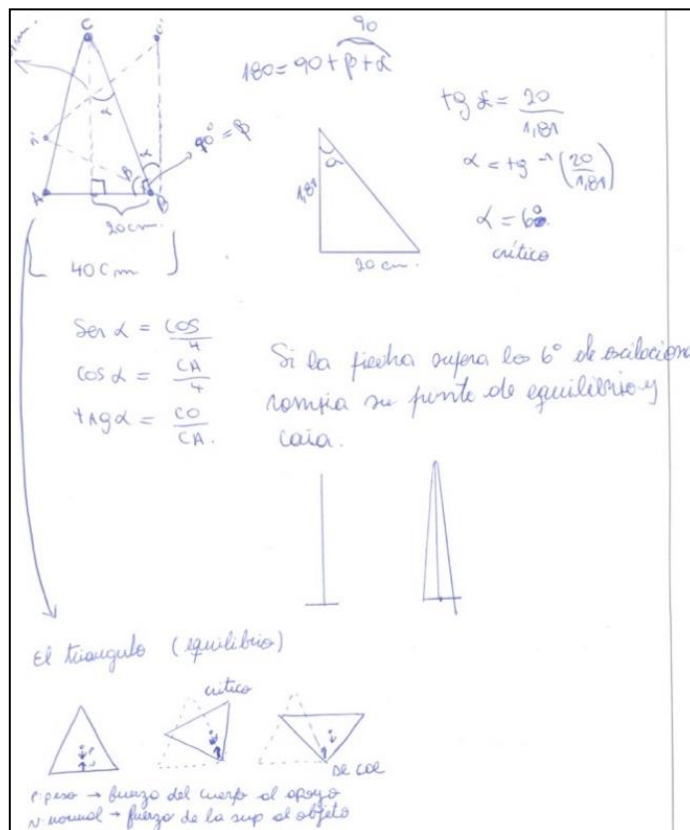 C
C'
90
180 = 90 + β + α
α
α
β
90° = β
A
B
20 cm.
40 cm
1,81
α
20 cm.
tg α = 20/1,81
α = tg -1 (20/1,81)
α = 6º
crítico
Sen α = COS/H
cos α = CA/4
tAgα = CO/CA.
Si la piedra supera los 6° de oscilacion
rompia su punto de equilibrio y
caia.
El triangulo (equilibrio)
critico
SE CAE
P: peso → fuerza del cuerpo al apoyo
N: normal → fuerza de la sup al objeto